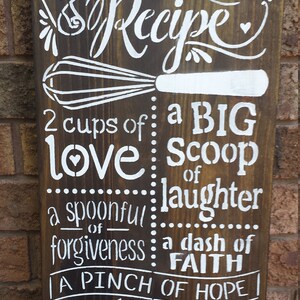 Recipe
2 cups of
love
a BIG
scoop
of
laughter
a spoonful
of
forgiveness
a dash of
FAITH
A PINCH OF HOPE